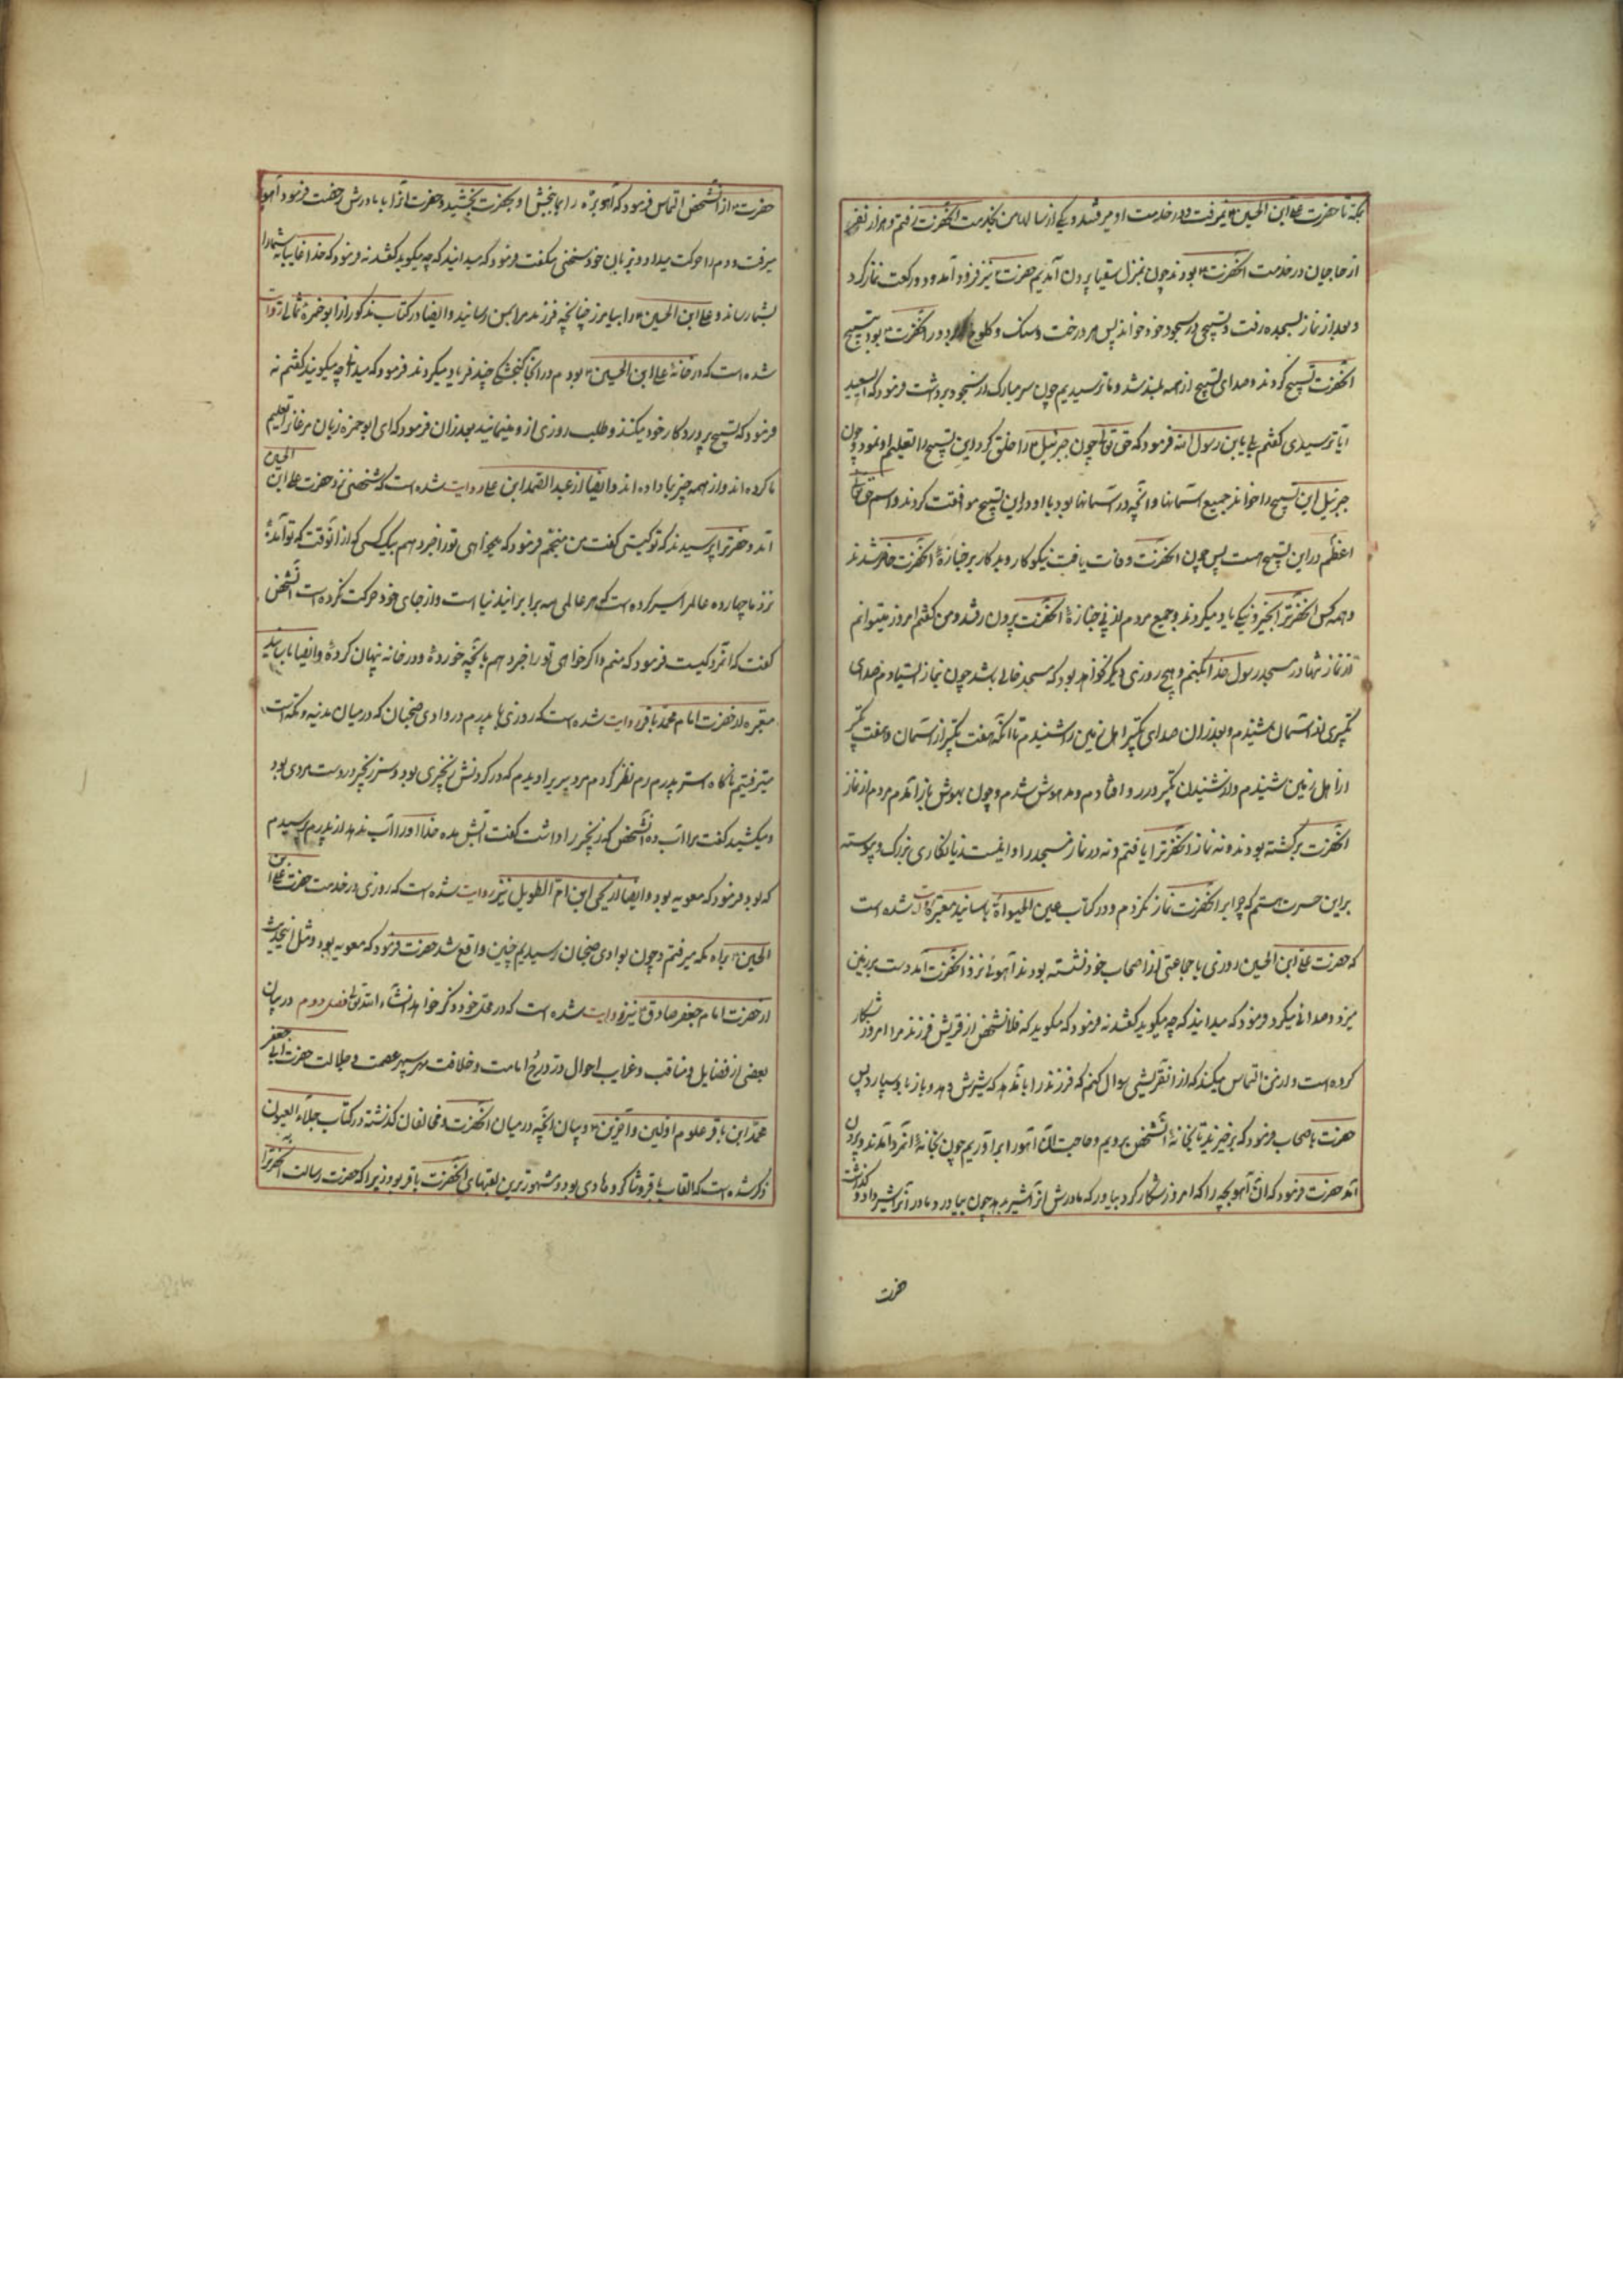 بمکه تا حضرت علی ابن الحسین ع نمیرفت و در خدمت او میرفتند و یکی از سالها من بخدمت آنحضرت رفتم و هزار نفر
از حاجیان در خدمت آنحضرت ع بودند چون بمنزل سقیا بیرون آمدیم حضرت نیز فرود آمد و دو رکعت نماز کرد
و بعد از نماز بسجده رفت و تسبیحی در سجود خود خواند پس هر درخت و سنگ و کلوخ که در دور آنحضرت ع بود بتسبیح
آنحضرت تسبیح کردند و صدای تسبیح از همه بلند شد و ما ترسیدیم چون سر مبارک از سجود برداشت فرمود که ای سعید
آیا ترسیدی گفتم بلی یابن رسول الله فرمود که حق تعالی چون جبرئیل ع را خلق کرد این تسبیح را تعلیم او نمود و چون
جبرئیل این تسبیح را خواند جمیع آسمانها و آنچه در آسمانها بود با او در این تسبیح موافقت کردند و اسم حق تعالی
اعظم در این تسبیح است پس چون آنحضرت وفات یافت نیکوکار و بدکار بر جنازهٔ آنحضرت حاضر شدند
و همه کس آنحضرترا بخیر و نیکی یاد میکردند و جمیع مردم از پی جنازهٔ آنحضرت بیرون رفتند و من گفتم امروز میتوانم
از نماز تنها در مسجد رسول خدا بکنم و هیچ روزی دیگر نخواهد بود که مسجد خالی باشد چون بنماز ایستادم صدای
تکبیری از آسمان شنیدم و بعد از آن صدای تکبیر اهل زمین را شنیدم تا آنکه هفت تکبیر از آسمان و هفت تکبیر
از اهل زمین شنیدم و از شنیدن تکبیر در رو افتادم و مدهوش شدم و چون بهوش باز آمدم مردم از نماز
آنحضرت برگشته بودند و نه نماز آنحضرترا یافتم و نه در نماز مسجد را و این است زیانکاری بزرگ و پیوسته
بر این حسرت هستم که چرا بر آنحضرت نماز نکردم و در کتاب عین الحیوة باسانید معتبره روایت شده است
که حضرت علی ابن الحسین روزی با جماعتی از اصحاب خود نشسته بودند آهوئی نزد آنحضرت آمد و دست بر زمین
میزد و صدائی میکرد فرمود که میدانید که چه میگوید گفتند نه فرمود که میگوید که فلانشخص از قریش فرزند مرا امروز شکار
کرده است و از من التماس میکند که از آنقریشی سوال کنم که فرزند را باو بدهد که شیرش دهد و باز باو بسپارد پس
حضرت باصحاب فرمود که برخیزید تا بخانهٔ آنشخص برویم و حاجت آن آهو را برآوریم چون بخانهٔ آنمرد آمدند و بیرون
آمد حضرت فرمود که آن آهوبچه را که امروز شکار کرد بیاور که مادرش آنرا شیر بدهد چون بیاورد و مادر آنرا شیر داد و گذاشت
حضرت
حضرت ع از آنشخص التماس فرمود که آهوبره را بما ببخش او بحضرت بخشید و حضرت آنرا با مادرش رخصت فرمود آهو
میرفت و دم را حرکت میداد و بزبان خود سخنی میگفت فرمود که میدانید که چه میگوید گفتند نه فرمود که خدا غایبهای شما را
بشما رساند و علی ابن الحسین ع را بیامرزد چنانچه فرزند مرا بمن رسانید و ایضا در کتاب مذکور از ابو حمزهٔ ثمالی روایت
شده است که در خانهٔ علی ابن الحسین ع بودم در آنجا گنجشکی چند فریاد میکردند فرمود که میدانی چه میگویند گفتم نه
فرمود که تسبیح پروردگار خود میکنند و طلب روزی از او مینمایند بعد از آن فرمود که ای ابو حمزه زبان مرغان را تعلیم
ما کرده اند و از همه چیز بما داده اند و ایضا از عبد الصمد ابن علی روایت شده است که شخصی نزد حضرت علی ابن الحسین
آمد و حضرترا پرسیدند که تو کیستی گفت من منجمم فرمود که میخواهی تو را خبر دهم بیک کسی که از آنوقت که تو آمدهٔ
نزد ما چهارده عالم را سیر کرده است که هر عالمی سه برابر این دنیا است و از جای خود حرکت نکرده است آنشخص
گفت که آنمرد کیست فرمود که منم و اگر خواهی تو را خبر دهم بآنچه خوردهٔ و در خانه پنهان کردهٔ و ایضا باسانید
معتبره از حضرت امام محمد باقر روایت شده است که روزی با پدرم در وادی ضجنان که در میان مدینه و مکه است
میرفتیم ناگاه استر پدرم رم نظر کردم مرد پیریرا دیدم که در گردنش زنجیری بود و سر زنجیر در دست مردی بود
و میکشید گفت مرا آب ده آنشخص که زنجیر را داشت گفت آبش مده خدا او را آب ندهد از پدرم پرسیدم
که بود فرمود که معویه بود و ایضا از یحیی ابن ام الطویل نیز روایت شده است که روزی در خدمت حضرت علی بن
الحسین ع براه مکه میرفتم و چون بوادی ضجنان رسیدیم چنین واقع شد حضرت فرمود که معویه بود و مثل اینحدیث
از حضرت امام جعفر صادق ع نیز روایت شده است که در محل خود ذکر خواهد شد انشاء الله تعالی فصل دوم در بیان
بعضی از فضایل و مناقب و غرایب احوال در درج امامت و خلافت مهر سپهر عصمت و جلالت حضرت ابی جعفر
محمد ابن باقر علوم اولین و آخرین ع و بیان آنچه در میان آنحضرت و مخالفان گذشته در کتاب جلاء العیون
ذکر شده است که القاب باقر و شاکر و هادی بود و مشهورترین لقبهای آنحضرت باقر بود زیرا که حضرت رسالت پناه آنحضرترا